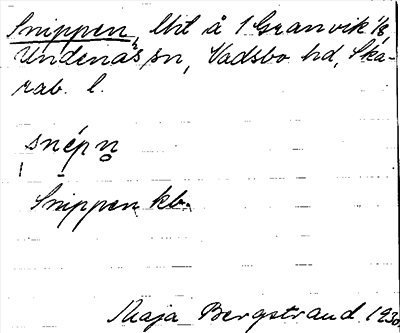 Snippen, lht å 1 Granvik 1/8,
Undenäs sn, Vadsbo hd, Ska-
rab. l.
snépn̥
Snippen kb.
Maja Bergstrand 1930